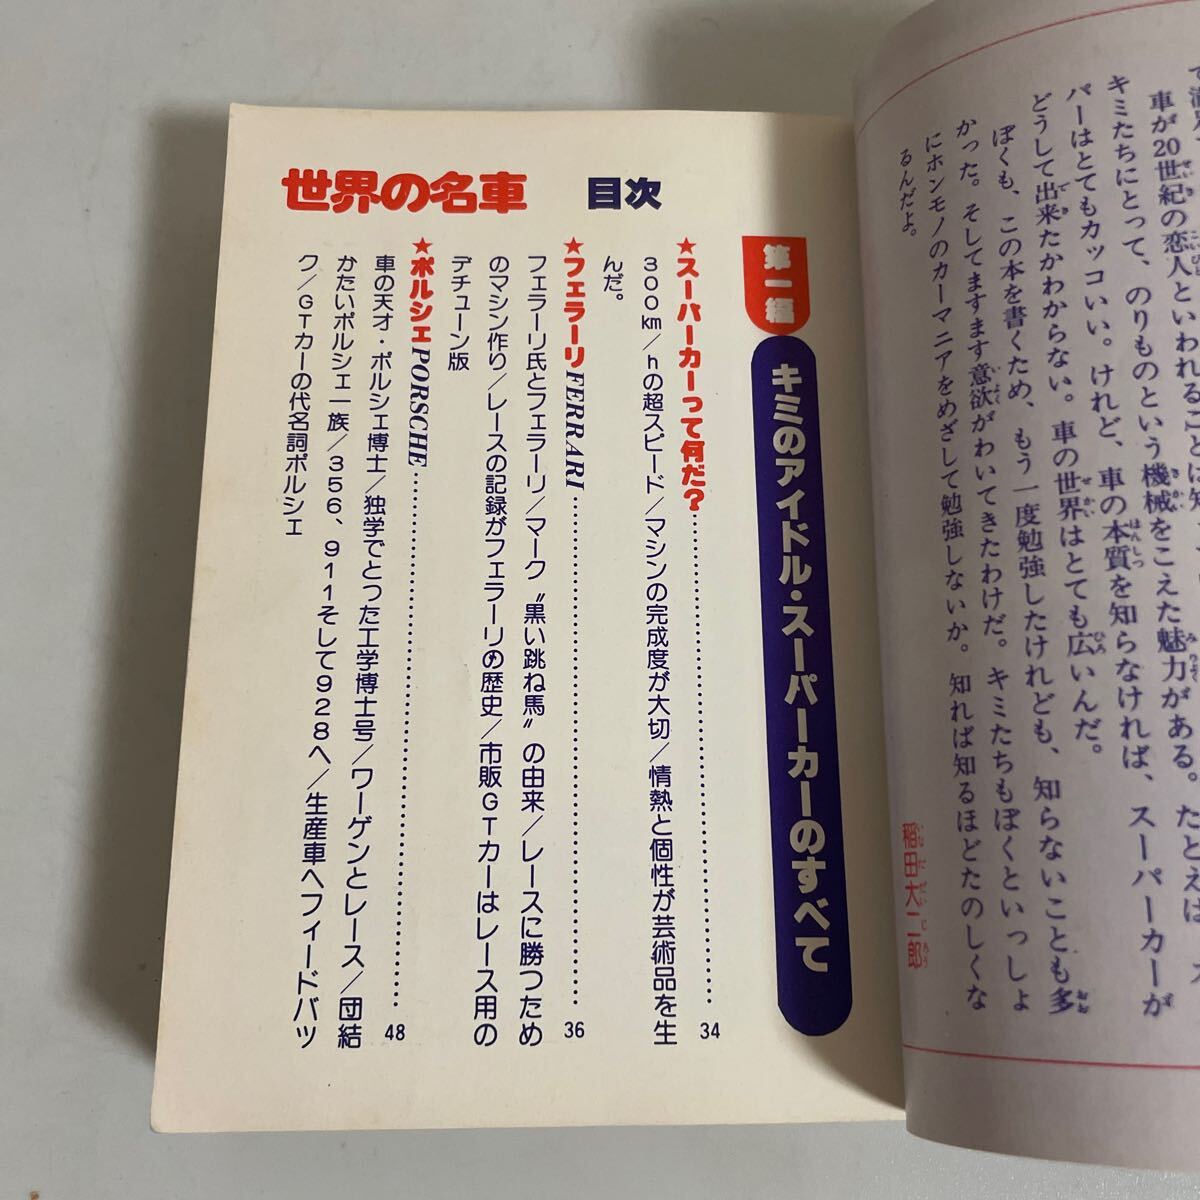 車が20世紀の恋人といわれることは
キミたちにとって、のりものという機械をこえた魅力がある。たとえば
パーはとてもカッコいい。けれど、車の本質を知らなければ、スーパーカーが
どうして出来たかわからない。車の世界はとても広いんだ。
ぼくも、この本を書くため、もう一度勉強したけれども、知らないことも多
かった。そしてますます意欲がわいてきたわけだ。キミたちもぼくといっしょ
にホンモノのカーマニアをめざして勉強しないか。知れば知るほどたのしくな
るんだよ。
稲田大二郎
世界の名車 目次
第一編 キミのアイドル・スーパーカーのすべて
★スーパーカーって何だ?……34
300km/hの超スピード/マシンの完成度が大切/情熱と個性が芸術品を生
んだ。
★フェラーリFERRARI……36
フェラーリ氏とフェラーリ/マーク〝黒い跳ね馬〟の由来/レースに勝つため
のマシン作り/レースの記録がフェラーリの歴史/市販GTカーはレース用の
デチューン版
★ポルシェPORSCHE……48
車の天才・ポルシェ博士/独学でとった工学博士号/ワーゲンとレース/団結
かたいポルシェ一族/356、911そして928へ/生産車へフィードバッ
ク/GTカーの代名詞ポルシェ